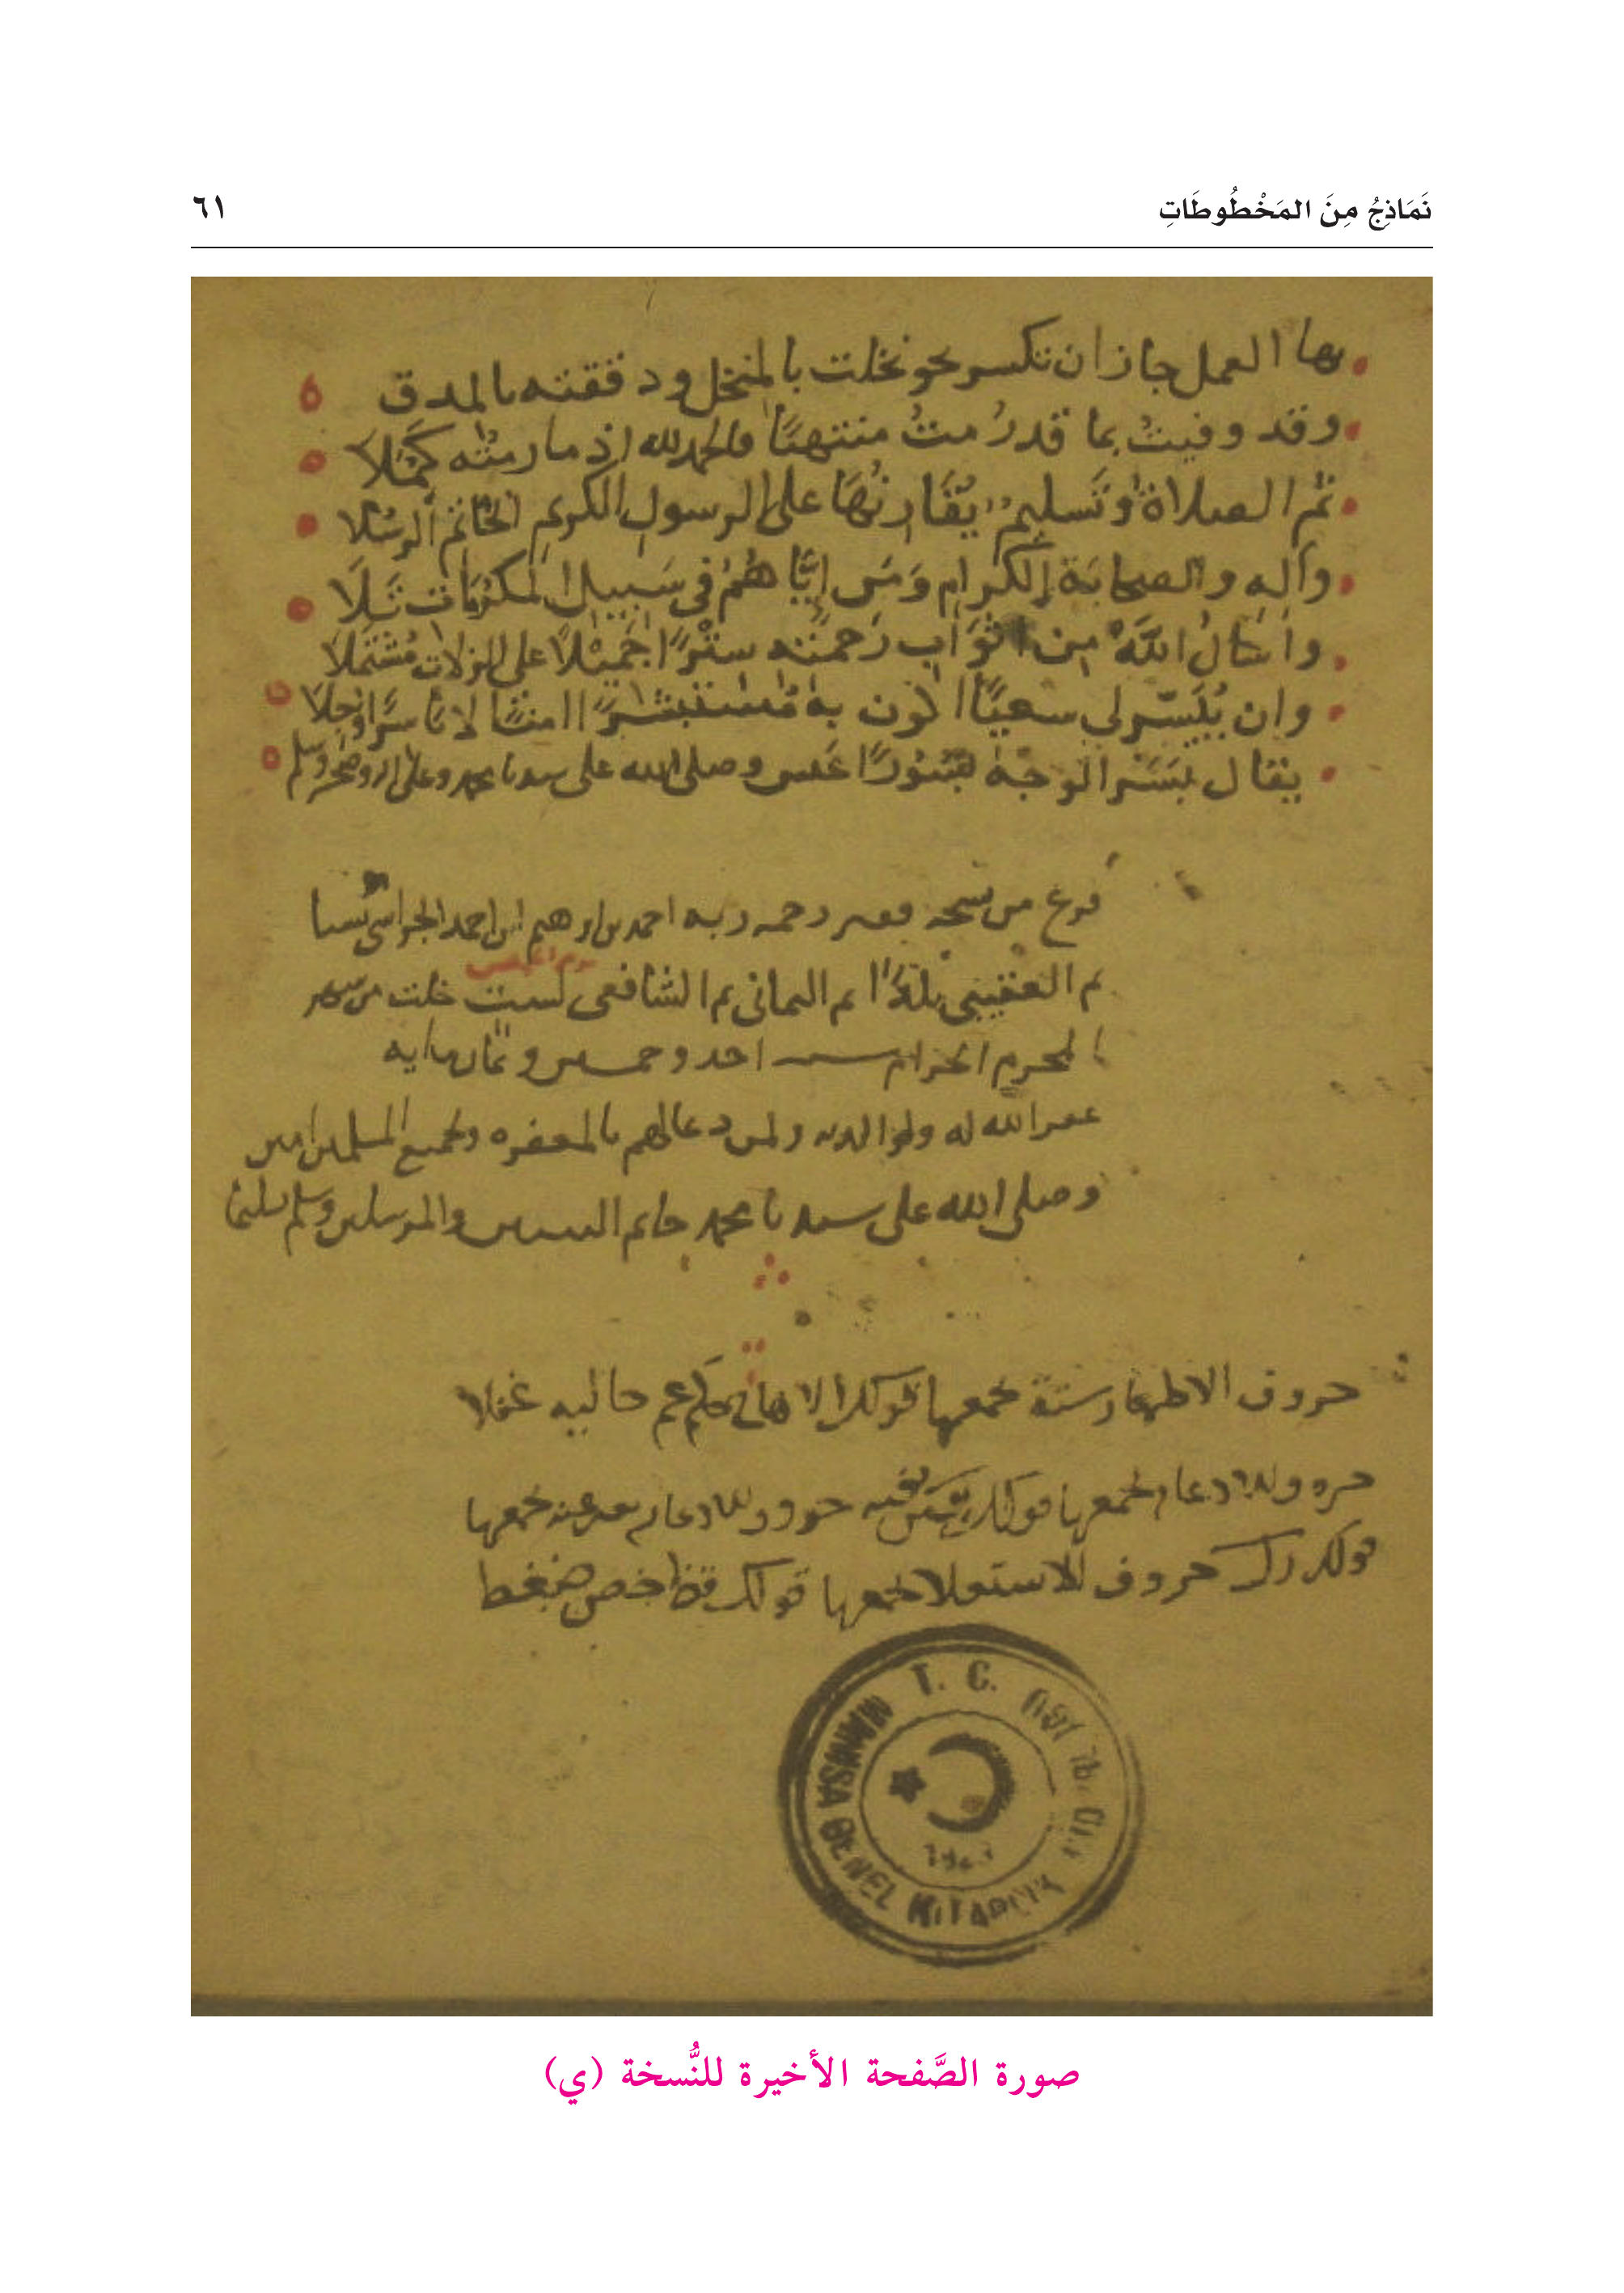 نَمَاذِجُ مِنَ المَخْطُوطَاتِ
٦١
بها العمل جاز ان تكسر نحو نخلت بالمنخل ودققته بالمدق
وقد وفيتُ بما قد رُمتُ منتهيًا والحمد لله اذ ما رمتُه كَمُلَا
ثم الصلاة وتَسليم يُقَارنُهَا على الرسول الكريم الخاتم الرسُلا
وآله والصحابة الكرام وَمَن ايَّاهُمُ في سَبيل المكرُمَات تَلَا
واسْاَلُ اللهَ من اثوَاب رَحمته ستْرًا جَميْلًا على الزلات مُشتملَا
وان يُيَسّر لي سعيًا اكون به مُستبشرًا امنًا لا باسرًا وَجلَا
يقال بَسَرَ الوجهُ بُسُورًا عَبس وصلى الله على سيدنا محمد وعلى اله وصحبه وسلم
فرغ من نسخه فقير رحمه ربه احمد بن ابرهيم ابن احمد
ثم بلدًا ثم اليماني ثم الشافعي لست خلت من شهر
يوم الخميس
المحرم الحرام سـنـه احد وخمسين وثمان مايه
غفر الله له ولوالديه ولمن دعا لهم بالمغفره ولجميع المسلمين امين
وصلى الله على سيدنا محمد خاتم النبيين والمرسلين وسلم تسليما
حروف الاظهار ستة يجمعها قولك الا هاج حكم عم خاليه غفلا
يجمعها قولك بغنه يجمعها
قولك رل حروف الاستعلا يجمعها قولك قظ خص ضغط
T. C.
MANISA GENEL KITAPLIK
صورة الصَّفحة الأخيرة للنُّسخة (ي)